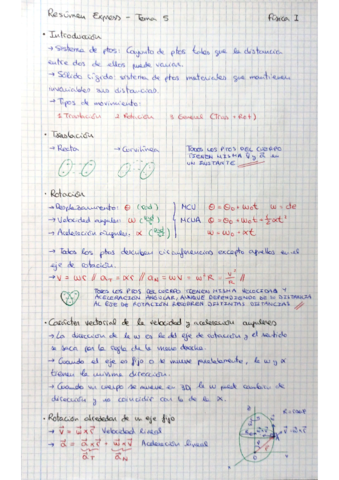 Resúmen Express - Tema 5 Física I
· Introducción
→ Sistema de ptos: Conjunto de ptos tales que la distancia
entre dos de ellos puede variar.
→ Sólido Rígido: sistema de ptos materiales que mantienen
invariables sus distancias.
→ Tipos de movimiento:
1. Traslación 2. Rotación 3. General (Tras + Rot)
· Traslación
→ Recta → Curvilínea TODOS LOS PTOS DEL CUERPO
TIENEN MISMA V⃗ y a⃗ EN
UN INSTANTE
· Rotación
→ Desplazamiento: θ (rad) MCU θ = θ₀ + ω₀t ω = cte
→ Velocidad angular: ω MCUA θ = θ₀ + ω₀t + ½αt²
→ Aceleración angular: α ω = ω₀ + αt
→ Todos los ptos describen circunferencias excepto aquellos en el
eje de rotación.
→ V = ωr // aT = αr // aN = ωV = ω²R = V²/R //
TODOS LOS PTOS DEL CUERPO TIENEN MISMA VELOCIDAD Y
ACELERACIÓN ANGULAR, AUNQUE DEPENDIENDO DE SU DISTANCIA
AL EJE DE ROTACIÓN RECORREN DISTINTAS DISTANCIAS
· Carácter vectorial de la velocidad y aceleración angulares
→ La dirección de la ω es la del eje de rotación y el sentido
se saca por la regla de la mano derecha.
→ Cuando el eje es fijo o se mueve paralelamente, la ω y α
tienen la misma dirección.
→ Cuando su cuerpo se mueve en 3D, la ω puede cambiar de
dirección y no coincidir con la de la α.
· Rotación alrededor de un eje fijo
→ V⃗ = ω⃗ x r⃗ Velocidad lineal
→ a⃗ = α⃗ x r⃗ + ω⃗ x V⃗ Aceleración lineal
a⃗T a⃗N